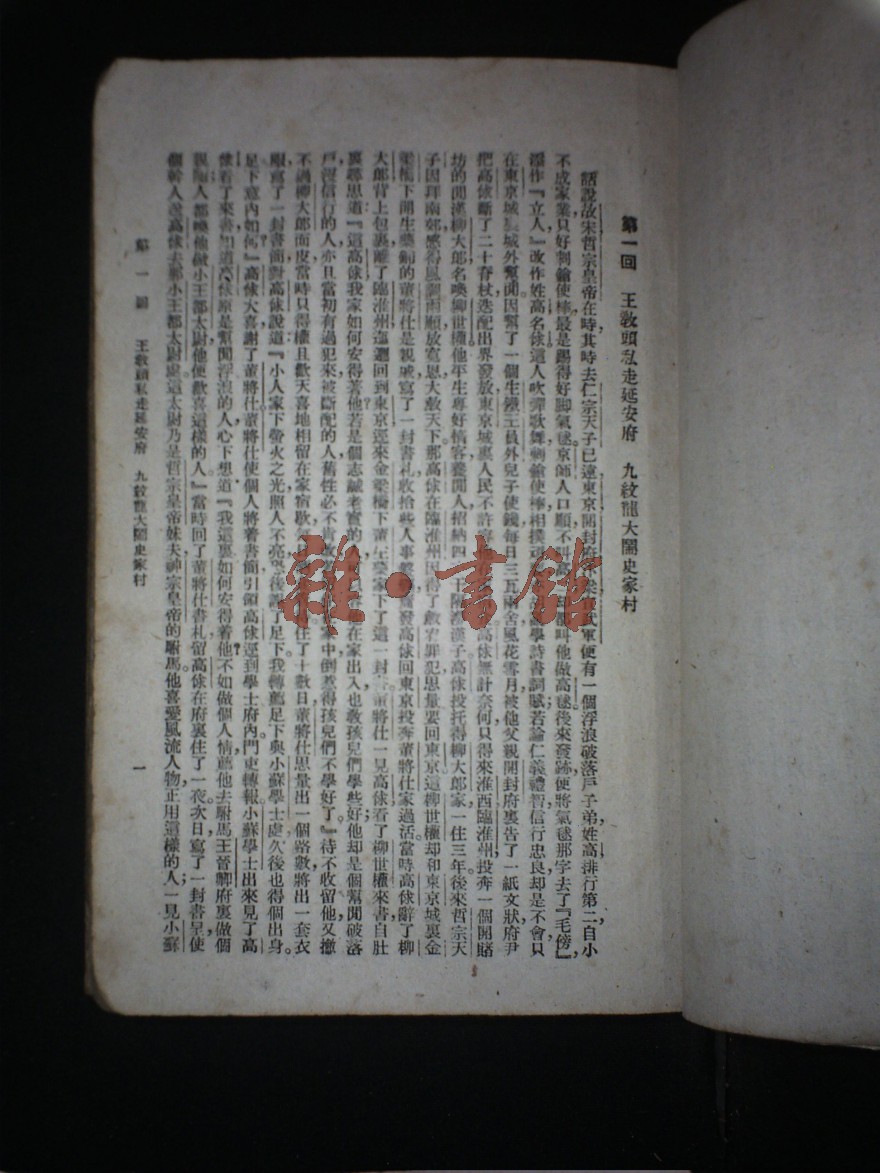 第一回　王教頭私走延安府　九紋龍大鬧史家村
話說故宋哲宗皇帝在時其時去仁宗天子已遠東京開封府汴梁宣武軍便有一個浮浪破落戶子弟姓高排行第二自小
不成家業只好刺鎗使棒最是踢得好脚氣毬京師人口順不叫高二却都叫他做高毬後來發跡便將氣毬那字去了『毛傍』
添作『立人』改作姓高名俅這人吹彈歌舞刺鎗使棒相撲頑耍亦胡亂學詩書詞賦若論仁義禮智信行忠良却是不會只
在東京城裏城外幫閒因幫了一個生鐵王員外兒子使錢每日三瓦兩舍風花雪月被他父親開封府裏告了一紙文狀府尹
把高俅斷了二十脊杖迭配出界發放東京城裏人民不許容他高俅無計奈何只得來淮西臨淮州投奔一個開賭
坊的閒漢柳大郎名喚柳世權他平生專好惜客養閒人招納四方干隔澇漢子高俅投托得柳大郎家一住三年後來哲宗天
子因拜南郊感得風調雨順放寬恩大赦天下那高俅在臨淮州因得了赦宥罪犯思量要回東京這柳世權却和東京城裏金
梁橋下開生藥鋪的董將仕是親戚寫了一封書札收拾些人事盤纏齎發高俅回東京投奔董將仕家過活當時高俅辭了柳
大郎背上包裹離了臨淮州迤邐回到東京逕來金梁橋下董生藥家下了這一封書董將仕一見高俅看了柳世權來書自肚
裏尋思道『這高俅我家如何安得著他若是個志誠老實的人可以容他在家出入也敎孩兒們學些好他却是個幫閒破落
戶沒信行的人亦且當初有過犯來被斷配的人舊性必不肯改若留住在家中倒惹得孩兒們不學好了』待不收留他又撇
不過柳大郎面皮當時只得權且歡天喜地相留在家宿歇每日酒食管待住了十數日董將仕思量出一個路數將出一套衣
服寫了一封書簡對高俅說道『小人家下螢火之光照人不亮恐後誤了足下我轉薦足下與小蘇學士處久後也得個出身
足下意內如何』高俅大喜謝了董將仕董將仕使個人將着書簡引領高俅逕到學士府內門吏轉報小蘇學士出來見了高
俅看了來書知道高俅原是幫閒浮浪的人心下想道『我這裏如何安得着他不如做個人情薦他去駙馬王晉卿府裏做個
親隨人都喚他做小王都太尉他便歡喜這樣的人』當時回了董將仕書札留高俅在府裏住了一夜次日寫了一封書呈使
個幹人送高俅去那小王都太尉處這太尉乃是哲宗皇帝妹夫神宗皇帝的駙馬他喜愛風流人物正用這樣的人一見小蘇
第一回　王教頭私走延安府　九紋龍大鬧史家村
一
雜·書館